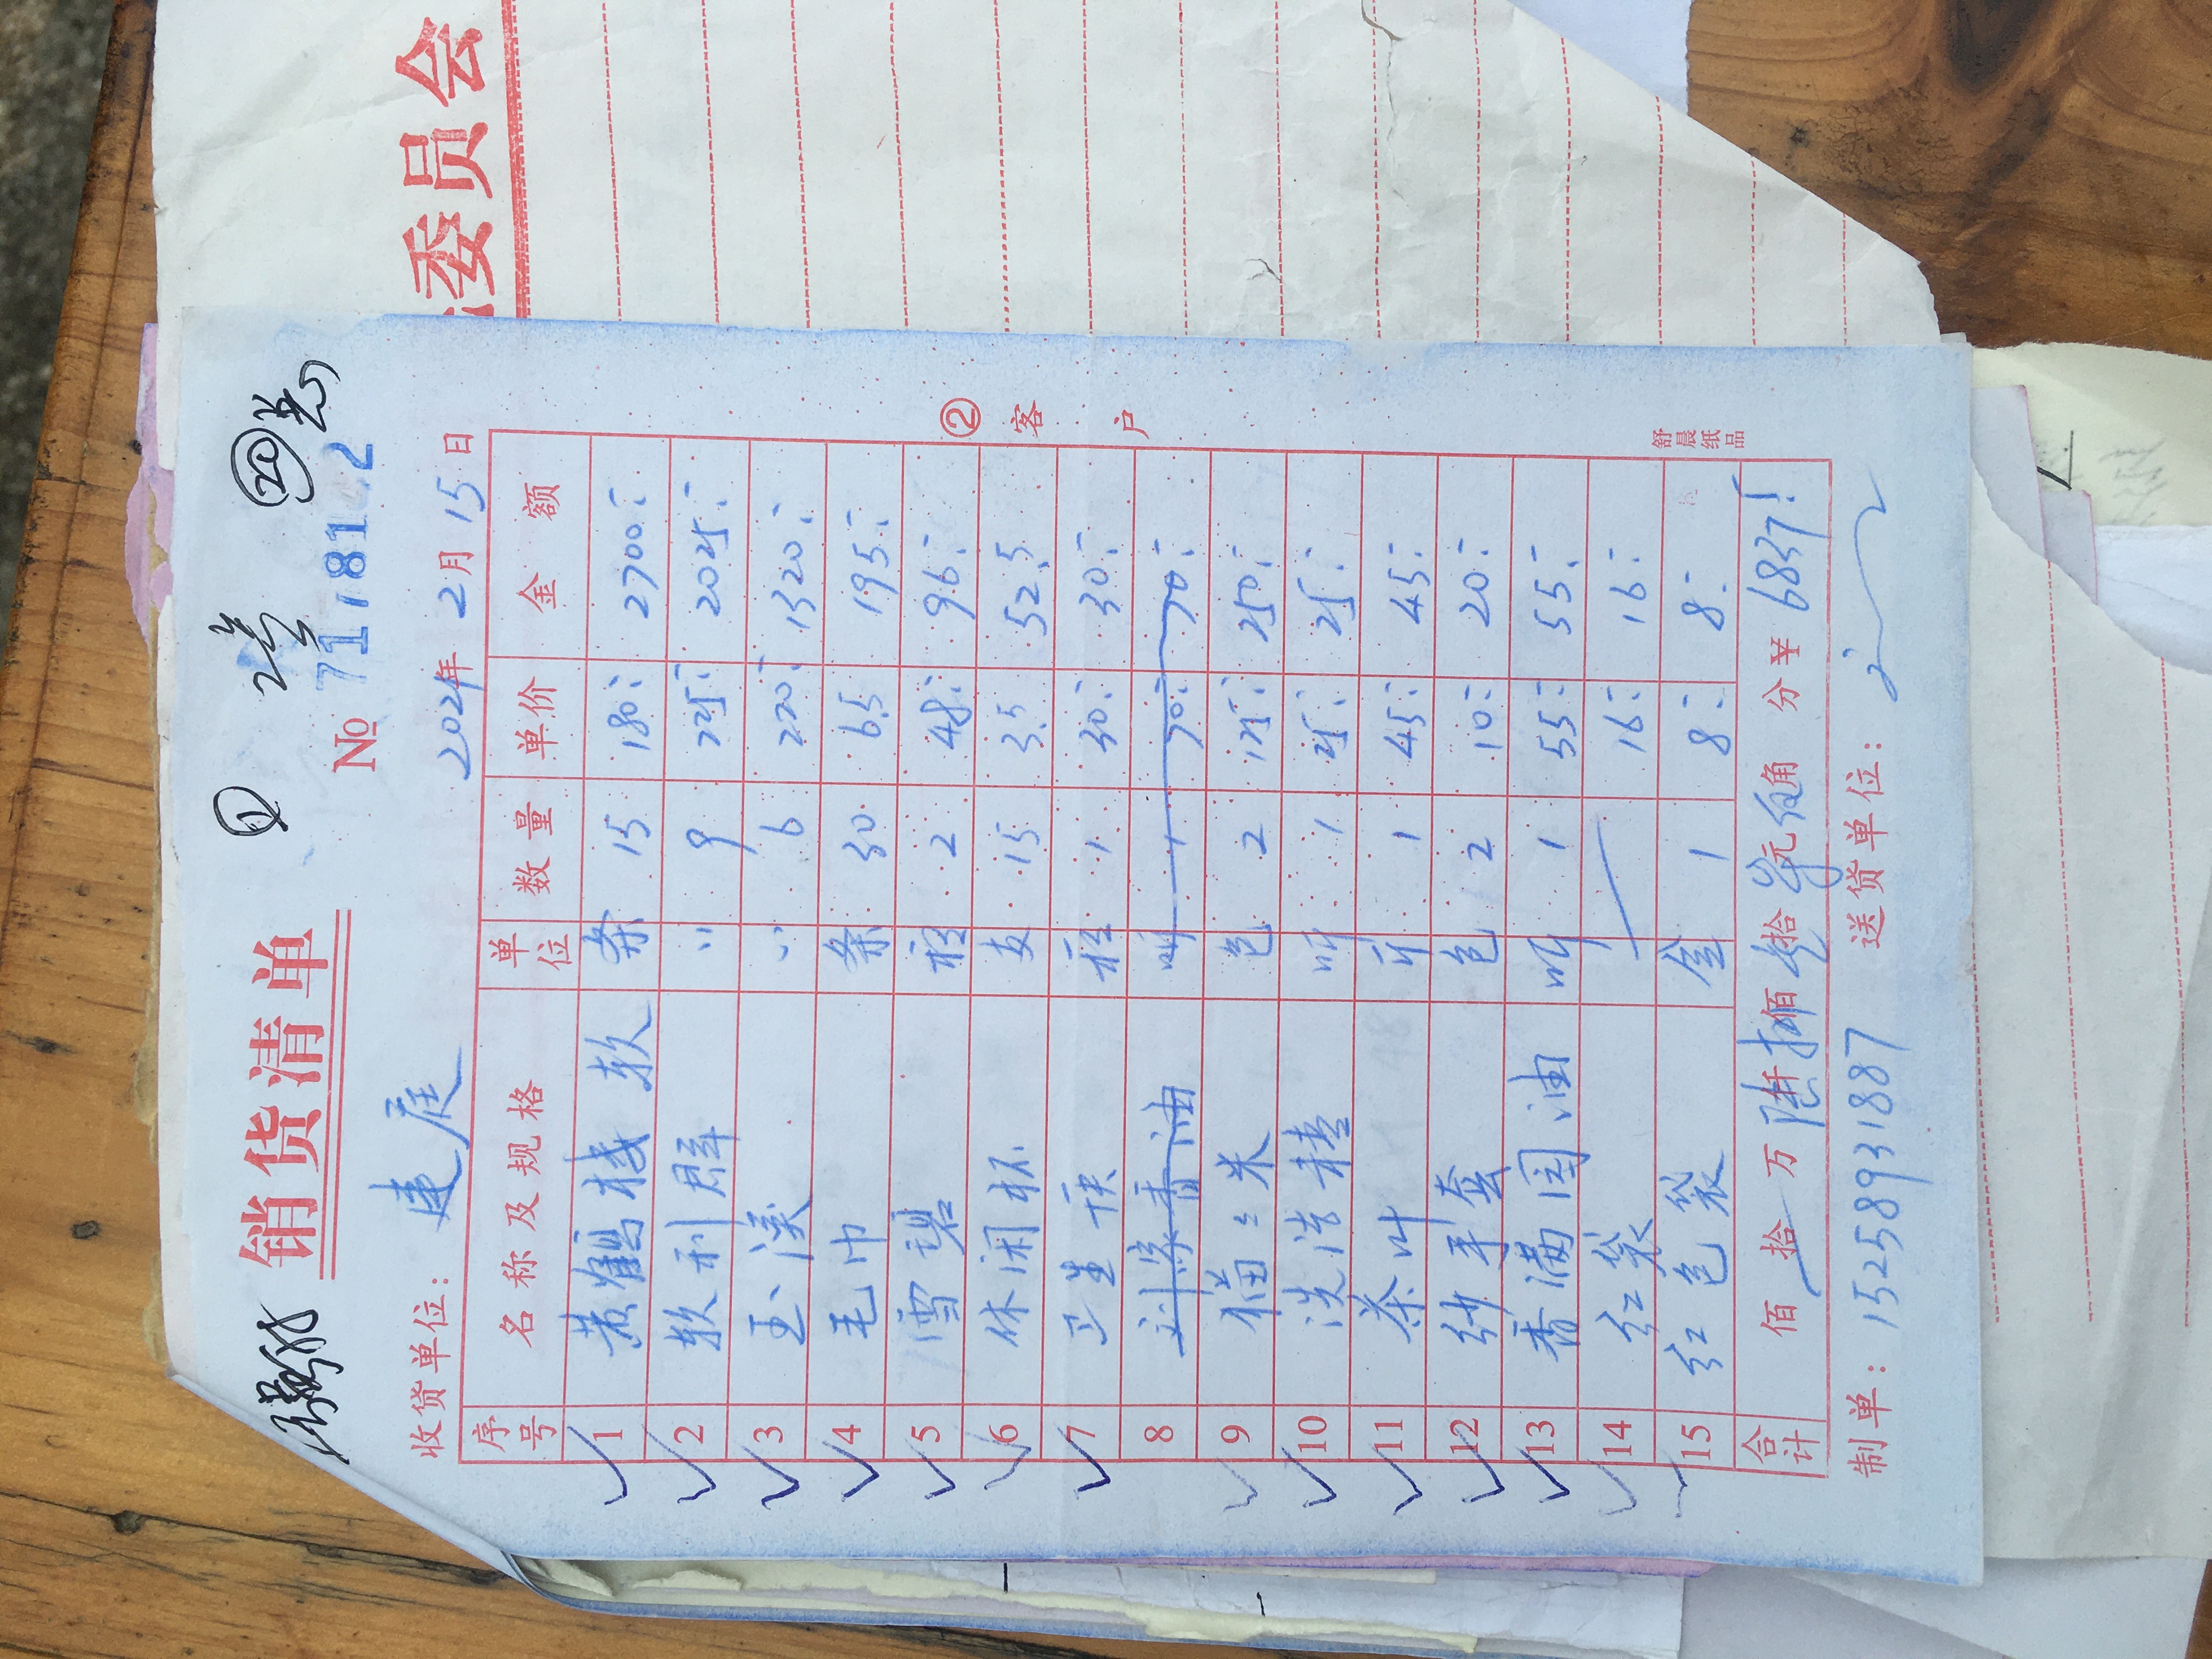 销货清单
№ 71
收货单位: 建庭 2021年 2月 15日
序号 名称及规格 单位 数量 单价 金额
1 黄鹤楼 软 条 15 180 2700
2 软利群 〃 9 225 2025
3 玉溪 〃 6 220 1320
4 毛巾 条 30 6.5 195
5 雪碧 2 48 96
6 休闲杯 支 15 3.5 52.5
7 卫生 1 30 30
8 刘家香油 听 1 70 70
9 猫々米 包 2 125 250
10 洗洁精 听 1 25 25
11 茶叶 斤 1 45 45
12 纱手套 包 2 10 20
13 香满园油 听 1 55 55
14 红袋 16 16
15 红包袋 1 8 8
合计 佰 拾 万 陆仟捌佰叁拾 元伍角 分 ¥ 6837.5
制单: 15258931887 送货单位:
②客户
舒晨纸品
委员会